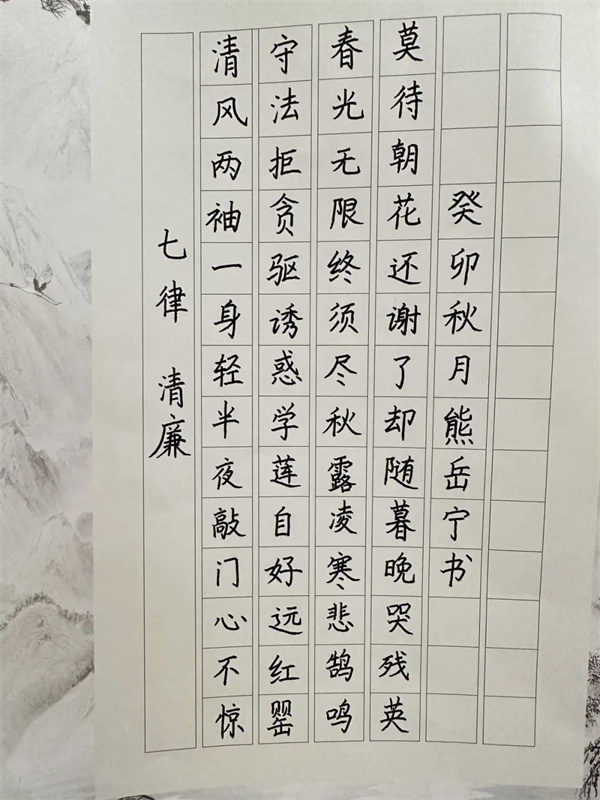 七律 清廉
清风两袖一身轻半夜敲门心不惊
守法拒贪驱诱惑学莲自好远红罂
春光无限终须尽秋露凌寒悲鹄鸣
莫待朝花还谢了却随暮晚哭残英
癸卯秋月熊岳宁书